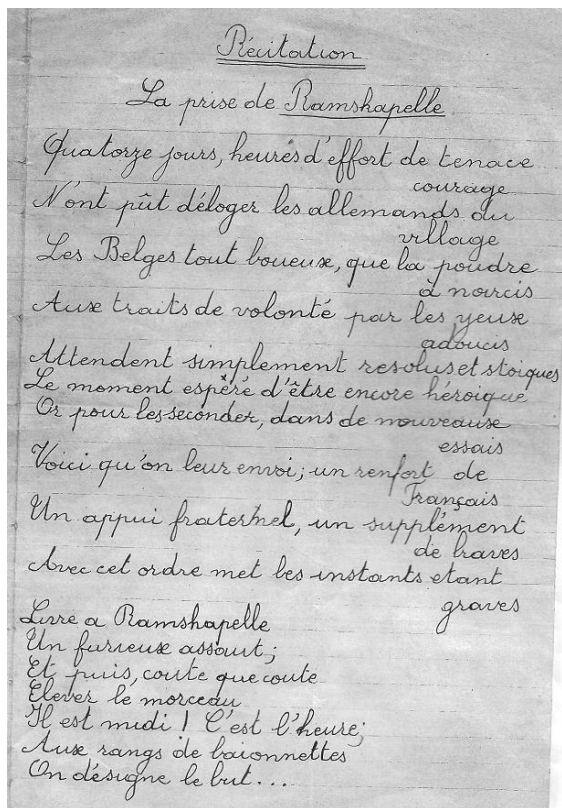 Récitation
La prise de Ramshapelle
Quatorze jours, heures d'effort de tenace
courage
N'ont pût déloger les allemands du
village
Les Belges tout boueux, que la poudre
à noircis
Aux traits de volonté par les yeux
adoucis
Attendent simplement resolus et stoiques
Le moment espéré d'être encore héroique
Or pour les seconder, dans de nouveaux
essais
Voici qu'on leur envoi; un renfort de
Français
Un appui fraternel, un supplément
de braves
Avec cet ordre met les instants etant
graves
Livre a Ramshapelle
Un furieux assaut;
Et puis, coute que coute
Elever le morceau
Il est midi ! C'est l'heure;
Aux rangs de baionnettes
On désigne le but...